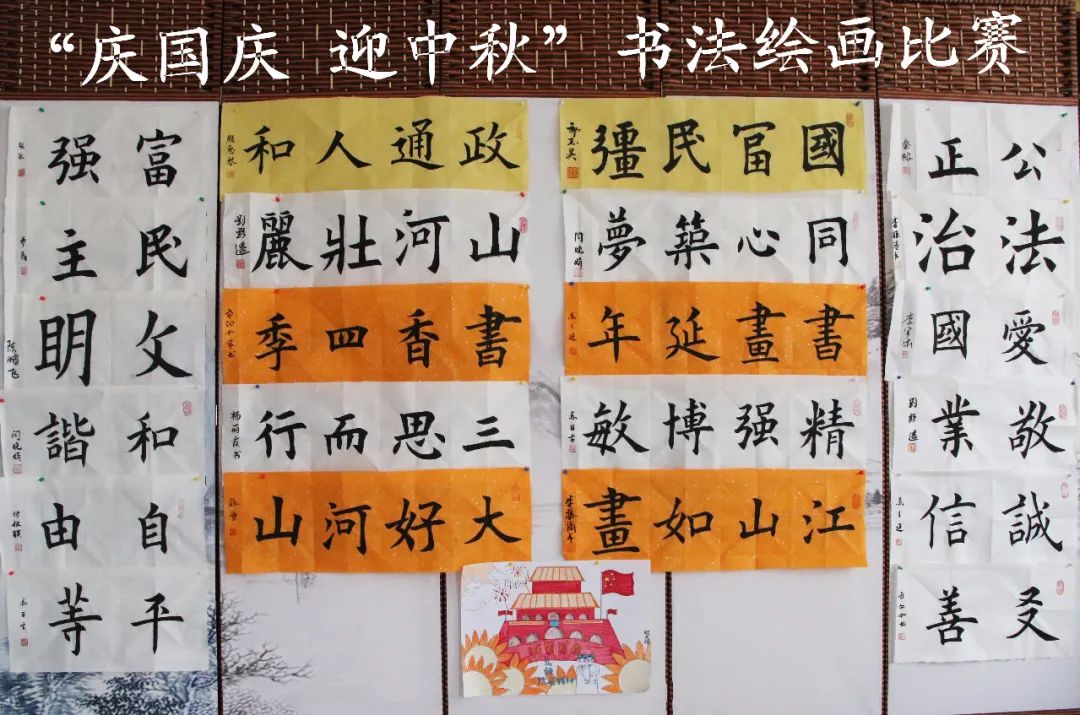 “庆国庆 迎中秋” 书法绘画比赛
富强
民主
文明
陈鹏飞
和諧
自由
平等
政通人和
山河壯麗
書香四季
三思而行
杨丽霞书
大好河山
國冨民彊
同心築夢
書畫延年
精强博敏
江山如畫
公正
法治
愛國
敬業
誠信
友善